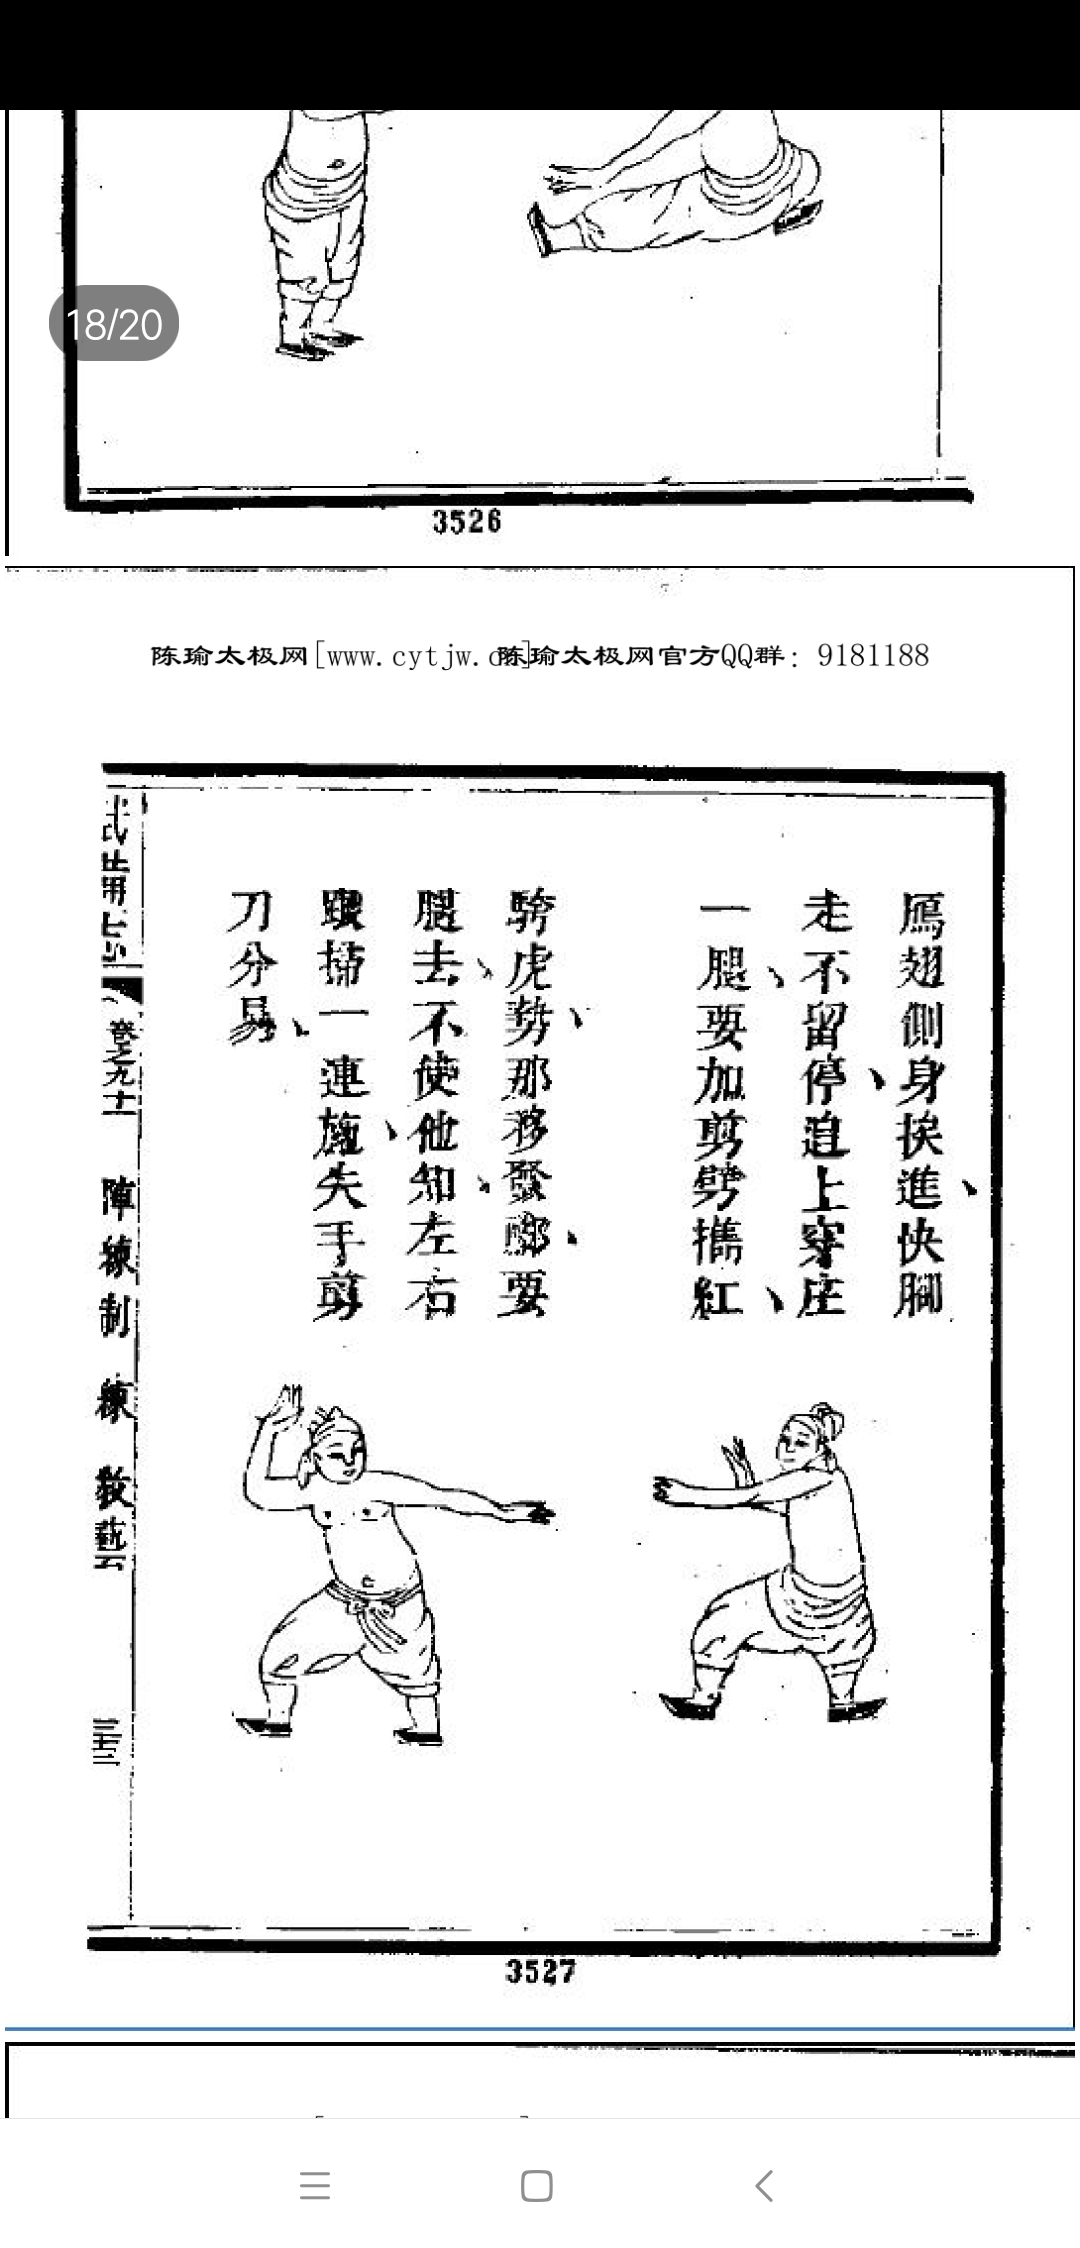 18/20
3526
陈瑜太极网[www.cytjw.
陈瑜太极网官方QQ群：9181188
鴈翅側身挨進快腳
走不留停追上穿庄
一腿要加剪劈㩦紅
騎虎勢那移發腳要
腿去不使他知左右
跟掃一連施失手剪
刀分易
武備志
卷之九十
陣練制
練
教藝
3527